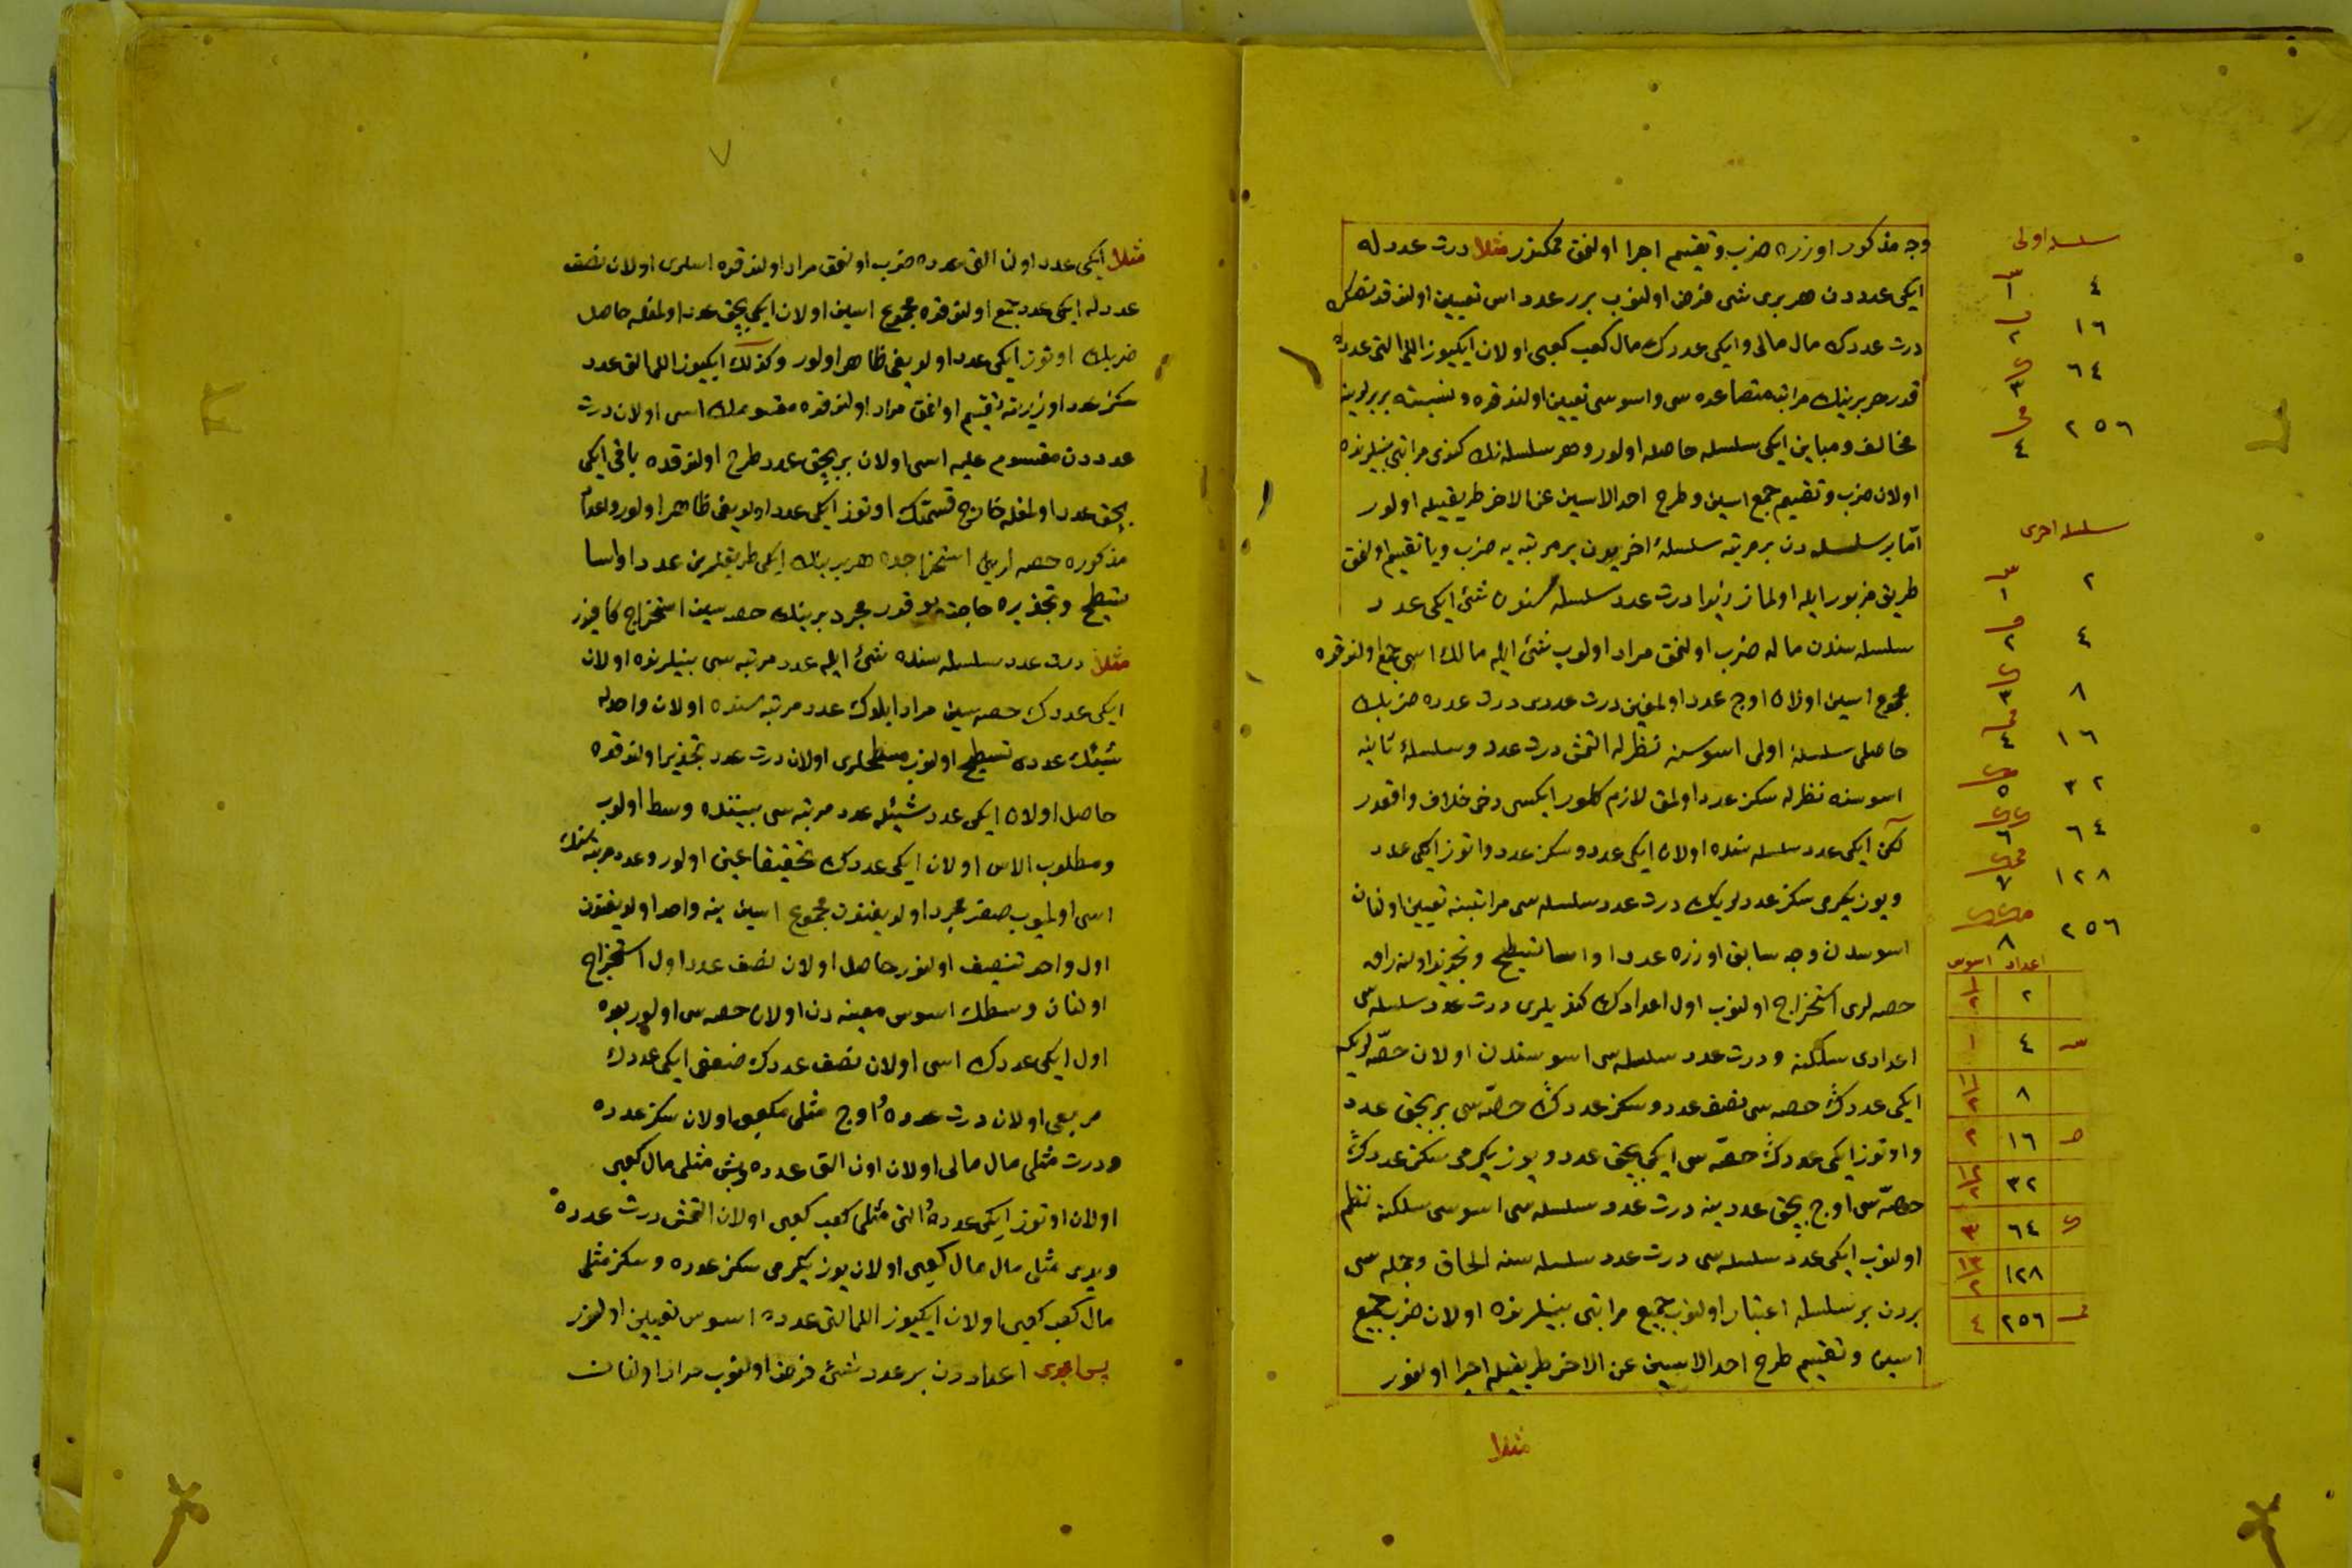 وجه مذكور اوزره ضرب وتقسيم اجرا اولنمق ممكندر مثلا درت عدد له
ايكى عدددن هر برى شى فرض اولنوب برر عدد اس تعيين اولندقدنصكره
درت عددك مال مالى وايكى عددك مال كعب كعبى اولان ايكيوز اللى التى عدده
قدر هر برينك مراتب متصاعده سى واسوسى تعيين اولندقده ونسبته بربرلرينه
مخالف ومباين ايكى سلسله حاصله اولور وهر سلسله نك كندى مراتبى بينلرنده
اولان ضرب وتقسيم جمع اسين وطرح احد الاسين عن الاخر طريقيله اولور
اما بر سلسله دن بر مرتبه سلسلهٔ اخريدن بر مرتبه يه ضرب ويا تقسيم اولنمق
طريق مزبور ايله اولماز زيرا درت عدد سلسله سندن شئ ايكى عدد
سلسله سندن ماله ضرب اولنمق مراد اولوب شئ ايله مالك اسى جمع اولندقده
مجموع اسين اولان اوج عدد اولمغين درت عددى درت عدده ضربك
حاصلى سلسلهٔ اولى اسوسنه نظرله التمش درت عدد وسلسلهٔ ثانيه
اسوسنه نظرله سكز عدد اولمق لازم كلور ايكسى دخى خلاف واقعدر
لكن ايكى عدد سلسله سنده اولان ايكى عدد وسكز عدد واوتوز ايكى عدد
ويوز يكرمى سكز عددلريك درت عدد سلسله سى مراتبنه تعيين اولنان
اسوسدن وجه سابق اوزره عددا واسا تسطيح وتجذير اولنه رق
حصه لرى استخراج اولنوب اول اعدادك كنديلرى درت عدد سلسله سى
اعدادى سلكنه ودرت عدد سلسله سى اسوسندن اولان حصه لريكه
ايكى عددك حصه سى نصف عدد وسكز عددك حصه سى بر بچق عدد
واوتوز ايكى عددك حصه سى ايكى بچق عدد ويوز يكرمى سكز عددك
حصه سى اوج بچق عدديينه درت عدد سلسله سى اسوسى سلكنه نظم
اولنوب ايكى عدد سلسله سى درت عدد سلسله سنه الحاق وجمله سى
بردن بر سلسله اعتبار اولنوب جميع مراتبى بينلرنده اولان ضرب جمع
اسين وتقسيم طرح احد الاسين عن الاخر طريقيله اجرا اولنور
مثلا
سلسله اولى
٤
١
١٦
٢
٦٤
٣
٢٥٦
٤
سلسله اخرى
٢
١
٤
٢
٨
٣
١٦
٤
٣٢
٥
٦٤
٦
١٢٨
٧
٢٥٦
٨
اعداد اسوس
٢ ١/٢
٤ ١
٨ ١ ١/٢
١٦ ٢
٣٢ ٢ ١/٢
٦٤ ٣
١٢٨ ٣ ١/٢
٢٥٦ ٤
٧
مثلا ايكى عدد اون التى عدده ضرب اولنمق مراد اولندقده اسلرى اولان نصف
عددله ايكى عدد جمع اولندقده مجموع اسين اولان ايكى بچق عدد اولمغله حاصل
ضربك اوتوز ايكى عدد اولديغى ظاهر اولور وكذلك ايكيوز اللى التى عدد
سكز عدد اوزرينه تقسيم اولنمق مراد اولندقده مقسومك اسى اولان درت
عدددن مقسوم عليه اسى اولان بر بچق عدد طرح اولندقده باقى ايكى
بچق عدد اولمغله خارج قسمتك اوتوز ايكى عدد اولديغى ظاهر اولور واعداد
مذكوره حصه لرين استخراجده هر برينك ايكى طريقلرين عددا واسا
تسطيح وتجذيره حاجت يوقدر مجرد برينك حصه سين استخراج كافيدر
مثلا درت عدد سلسله سنده شئ ايله عدد مرتبه سى بينلرنده اولان
ايكى عددك حصه سين مراد ايلدك عدد مرتبه سنده اولان واحدله
شيئك عددى تسطيح اولنوب مسطحلرى اولان درت عدد تجذير اولندقده
حاصل اولان ايكى عدد شيئله عدد مرتبه سى بيننده وسط اولوب
ومطلوب الاس اولان ايكى عددك تحقيقا عينى اولور وعدد مرتبه سنك
اسى اولميوب صفر مجرد اولديغندن مجموع اسين ينه واحد اولديغندن
اول واحد تنصيف اولنور حاصل اولان نصف عدد اول استخراج
اولنان وسطك اسوس معينه دن اولان حصه سى اولور بعده
اول ايكى عددك اسى اولان نصف عددك ضعفى ايكى عددك
مربعى اولان درت عدده اوج مثلى مكعبى اولان سكز عدده
ودرت مثلى مال مالى اولان اون التى عدده وبش مثلى مال كعبى
اولان اوتوز ايكى عدده التى مثلى كعب كعبى اولان التمش درت عدده
ويدى مثلى مال مال كعبى اولان يوز يكرمى سكز عدده وسكز مثلى
مال كعب كعبى اولان ايكيوز اللى التى عدده اسوس تعيين اولنور
اعداددن بر عدد شئ فرض اولنوب مراد اولنان